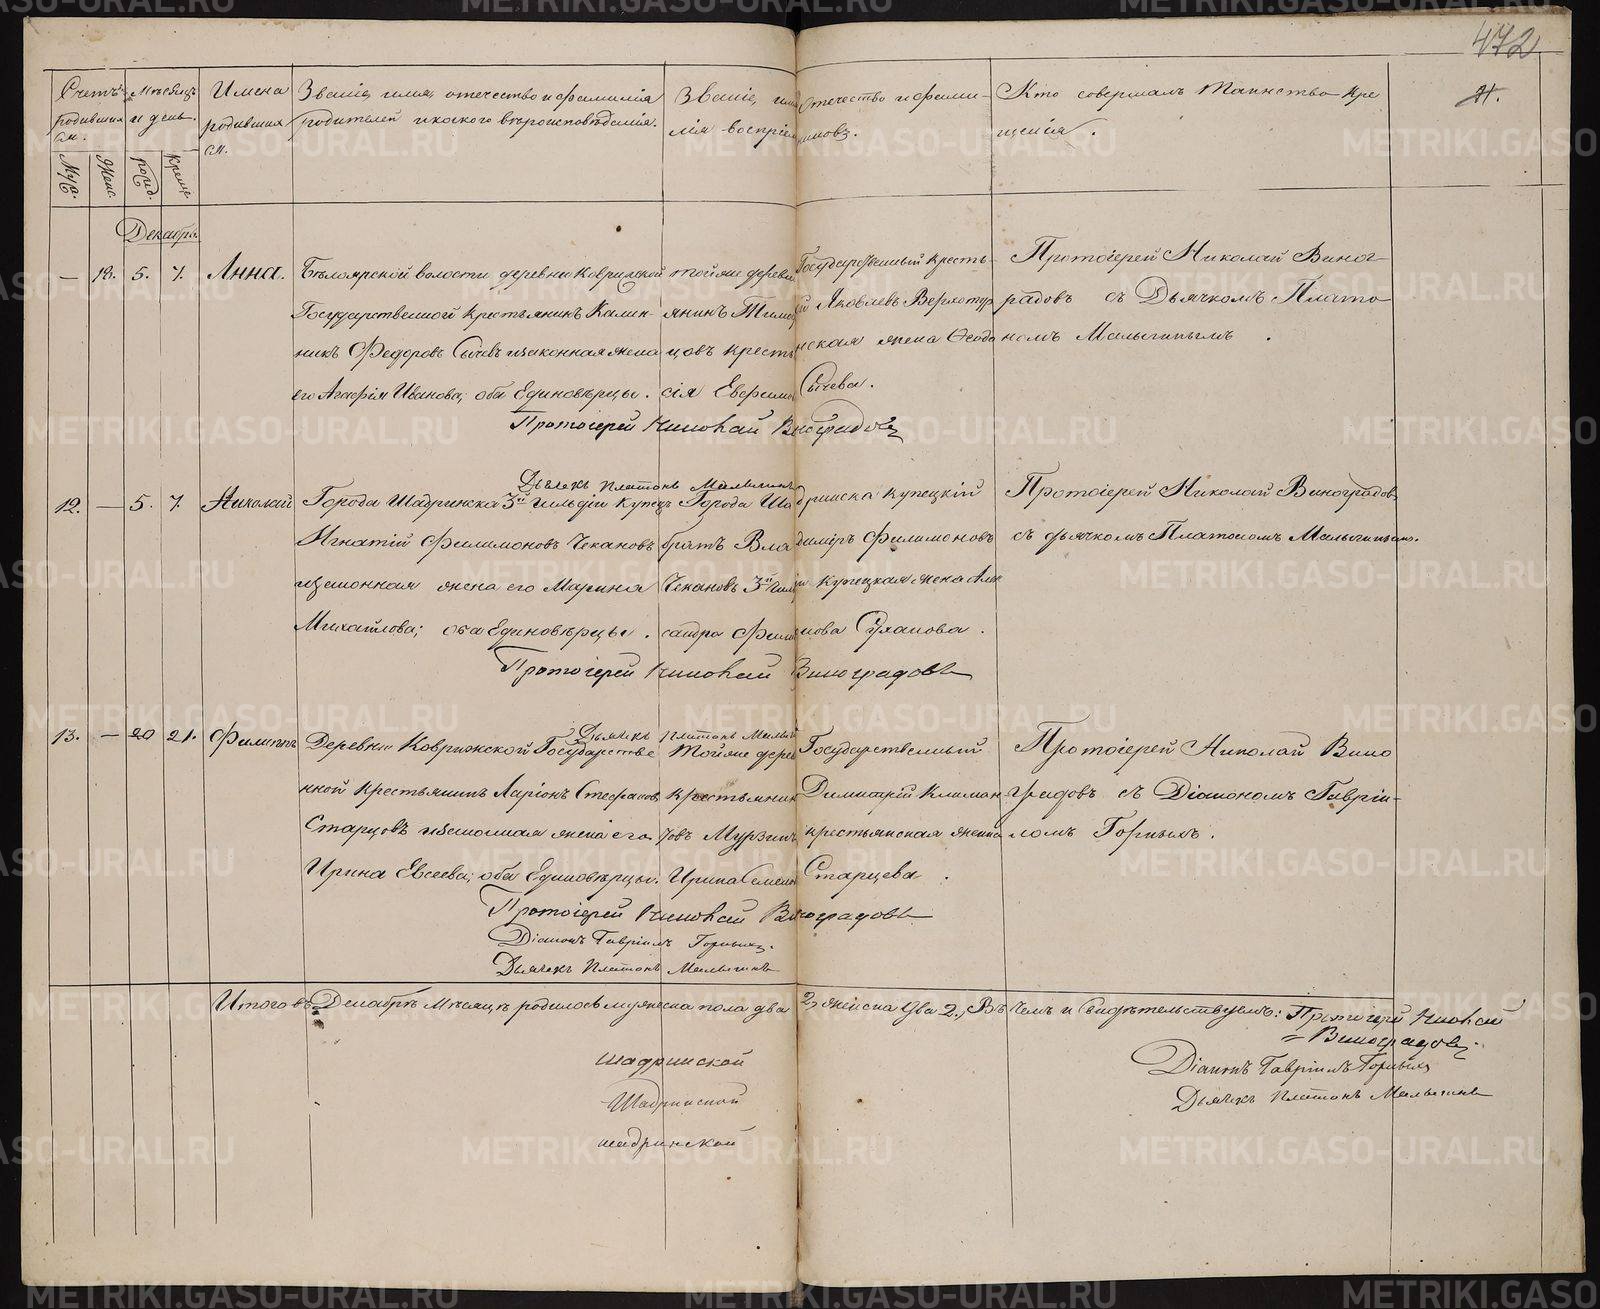 472
Счетъ родившихся.
Муж.
Женс.
Мѣсяцъ и день.
рожд.
крещ.
Имена родившихся.
Званіе, имя, отечество и фамилія
родителей и какого вѣроисповѣданія.
Званіе, имя, отечество и фами-
лія воспріемниковъ.
Кто совершалъ таинство кре
щенія.
Декабрь
— 12. 5. 7. Анна.
Бѣлоярской волости деревни Ковриж­ской
Государственной крестьянинъ Калин-
никъ Федоровъ Сычевъ и законная жена
его Агафія Иванова; оба Единовѣрцы.
тойже деревни Государственный кресть-
янинъ Тимофей Яковлевъ Верхотур
цовъ крестьянская жена Ѳеодо
сія Евфимова Сычева.
Протоіерей Николай Виног
радовъ съ Дьячкомъ Плато
номъ Малыгинымъ.
Протоіерей Николай Виноградовъ
Дьячекъ Платонъ Малыгинъ
12. — 5. 7. Николай
Города Шадринска 3й гильдіи купецъ
Игнатій Филимоновъ Чекановъ
и законная жена его Марина
Михайлова; оба Единовѣрцы.
Города Шадринска купецкій
братъ Владиміръ Филимоновъ
Чекановъ 3й гильдіи купецкая жена Алек
сандра
Протоіерей Николай Виноградовъ
съ дьячкомъ Платономъ Малыгинымъ.
Протоіерей Николай Виноградовъ
Дьячекъ Платонъ Малыгинъ
13. — 20 21. Филиппъ
Деревни Ковриж­ской Государстве
нной крестьянинъ Ларіонъ Стефановъ
Старцовъ и законная жена его
Ирина Евсеева; оба Единовѣрцы.
Тойже деревни Государственный
крестьянинъ Димитрій Климан
товъ Мурзинъ крестьянская жена
Ирина Семенова Старцева.
Протоіерей Николай Вино
градовъ съ Діакономъ Гавріи-
ломъ Горныхъ.
Протоіерей Николай Виноградовъ
Діаконъ Гавріилъ Горныхъ.
Дьячекъ Платонъ Малыгинъ
Итого въ Декабрѣ мѣсяцѣ родилось мужеска пола два 2, женска два 2, Въ чемъ и свидѣтельствуемъ: Протоіерей Николай
Виноградовъ.
Діаконъ Гавріилъ Горныхъ
Дьячекъ Платонъ Малыгинъ
шадринской
Шадринской
шадринской
METRIKI.GASO-URAL.RU